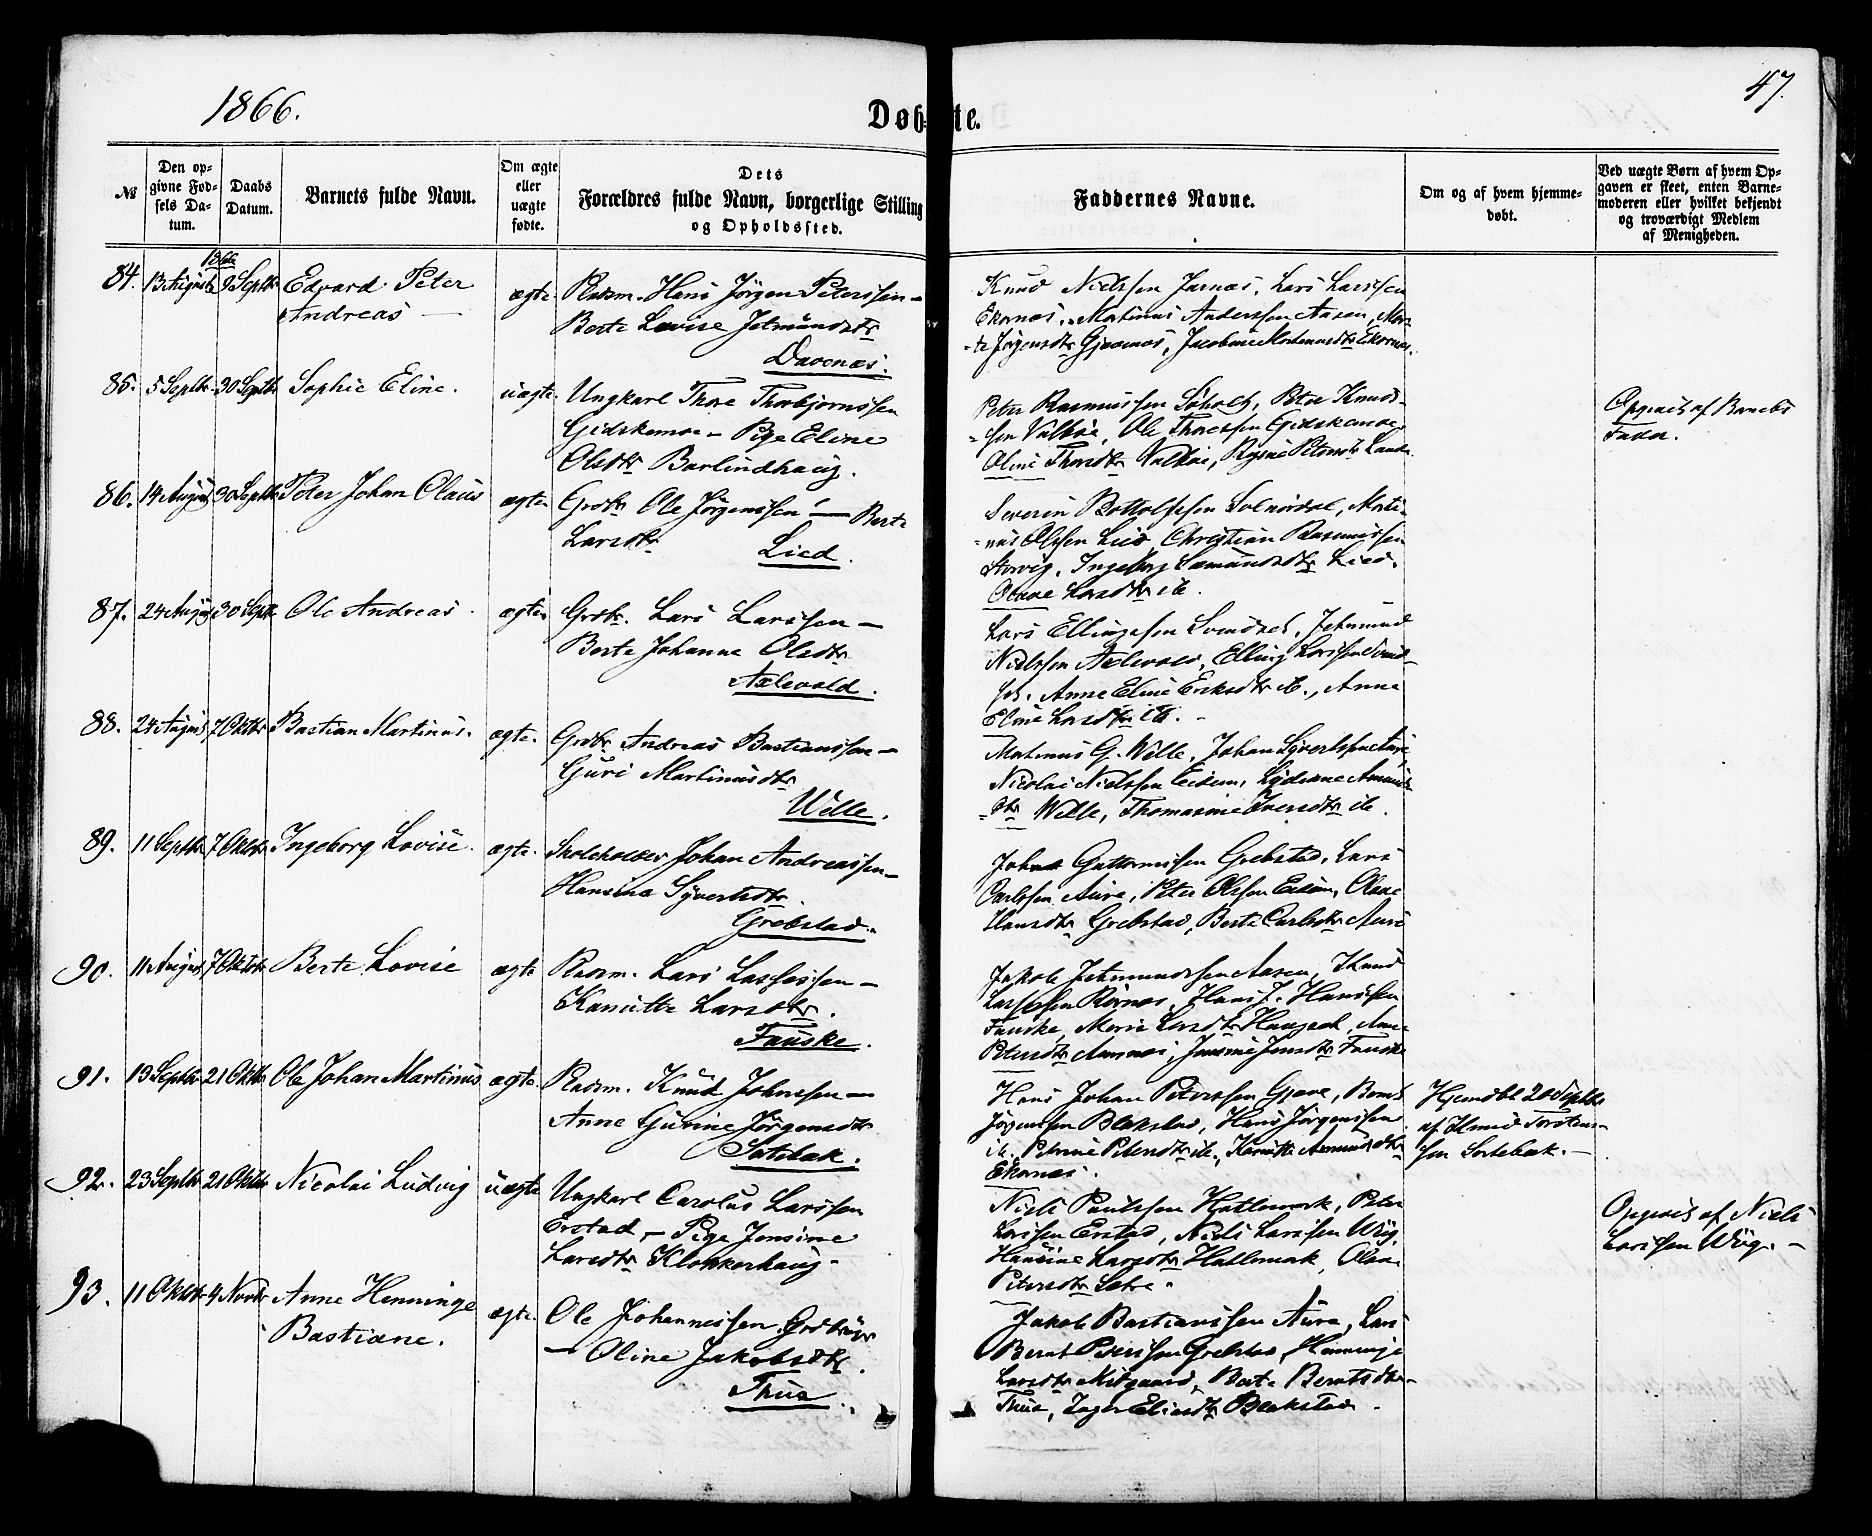 1866.
47.
Døbte.
№
Den opgivne Fødsels Datum.
Daabs Datum.
Barnets fulde Navn.
Om ægte eller uægte fødte.
Dets Forældres fulde Navn, borgerlige Stilling og Opholdssted.
Faddernes Navne.
Om og af hvem hjemmedøbt.
Ved uægte Børn af hvem Opgaven er skeet, enten Barnemoderen eller hvilket bekjendt og troværdigt Medlem af Menigheden.
1866
84. 13 August 9 Septbr Edvard Peter
Andreas
ægte. Pladsm. Hans Jörgen Peterssen –
Berte Lovise Jetmundsdtr
Davenæs.
Knud Nielssen Jarnæs, Lars Larssen
Ekornæs, Martinus Anderssen Aasen, Mar-
=te Jörgensdtr Gjævenæs, Jacobine Martinusdtr Ekornæs.
85. 5 Septbr. 30 Septbr Sophie Eline.
uægte. Ungkarl Thore Thorbjørnssen
Gidskemoe – Pige Eline
Olsdtr Barlindhaug.
Peter Rasmussen Söholt, Peter Knuds-
=sen Valköe, Ole Thoressen Gidskemoe,
Oline Thorsdtr Valköe,
Opgivet af Barnets
Fader.
86. 14 August 30 Septbr Peter Johan Olaus
ægte. Grdbr Ole Jørgenssen – Berte
Larsdtr
Lied.
Severin Bottolfssen Solnördal, Marti-
=nus Olssen Lied, Christian Rasmussen
Storvig, Ingeborg Samundsdtr Lied,
Olave Larsdtr ib.
87. 24 August 30 Septb Ole Andreas.
ægte. Grdbr. Lars Larssen –
Berte Johanne Olsdtr
Axlevold.
Lars Ellingssen Svendset, Jetmund
Nielssen Axlevold, Elling Larssen Svend-
set. Anne Eline Eriksdtr ib., Anne
Eline Larsdtr ib. –
88. 24 August 7 Oktbr Bastian Martinus.
ægte. Grdbr Andreas Bastianssen –
Guri Martinusdtr
Welle.
Martinus G. Welle, Johan Syvertssen Aure,
Nicolai Nielssen Eidem,
=dtr Welle, Thomasine Iversdtr ib.
89. 11 Septbr 7 Oktbr Ingeborg Lovise.
ægte. Skoleholder Johan Andreassen –
Hansina Syvertsdtr.
Grebstad.
Johan Guttormssen Grebstad, Lars
Carlssen Aure, Peter Olssen Eidem, Olave
Hansdtr Grebstad, Berte Carlsdtr Aure
90. 11 August 7 Oktbr Berte Lovise
ægte Pladsm. Lars Lassessen –
Kanutte Larsdtr.
Fauske.
Jakob Jetmundssen Aasen, Knud
Lassessen Rörnæs, Hans J. Hanssen
Fauske, Marie Larsdtr Haugset, Ane
Petersdtr Aursnes, Jensine Jensdtr Fauske
91. 13 Septbr 21 Oktbr Ole Johan Martinus
ægte. Pladsm. Knud Johnssen –
Anne Gurine Jörgensdtr
Satebak.
Hans Johan Peterssen Gjære, Bernt
Jörgenssen Blakstad, Hans Jörgenssen
ib. Petrine Petersdtr ib., Kanutte Asmundsdtr
Ekornæs.
Hjemdbt 20 Septbr
af Knud Torstens-
sen Sortebak. –
92. 23 Septbr 21 Oktbr Nicolai Ludvig
uægte Ungkarl Carolus Larssen
Erstad, – Pige Jensine
Larsdtr Klokkerhaug –
Niels Paulssen Hatlemark, Peter
Larssen Erstad, Niels Larssen Wiig,
Hansine Larsdtr Hatlemark, Olave
Petersdtr Sætre –
Opgivet af Niels
Larssen Wiig. –
93. 11 Oktbr 4 Novbr Anne Henninge
Bastiane.
ægte. Ole Johannessen, Grdbruger
– Oline Jakobsdtr.
Thue.
Jakob Bastianssen Aure, Lars
Bernt Peterssen Grebstad, Henninge
Larsdtr Midgaard, Berte Berntsdtr
Thue, Inger Eliasdtr Blakstad.